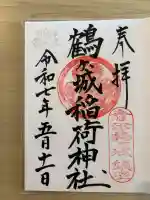 奉拝
鶴ヶ城稲荷神社
令和七年五月十一日